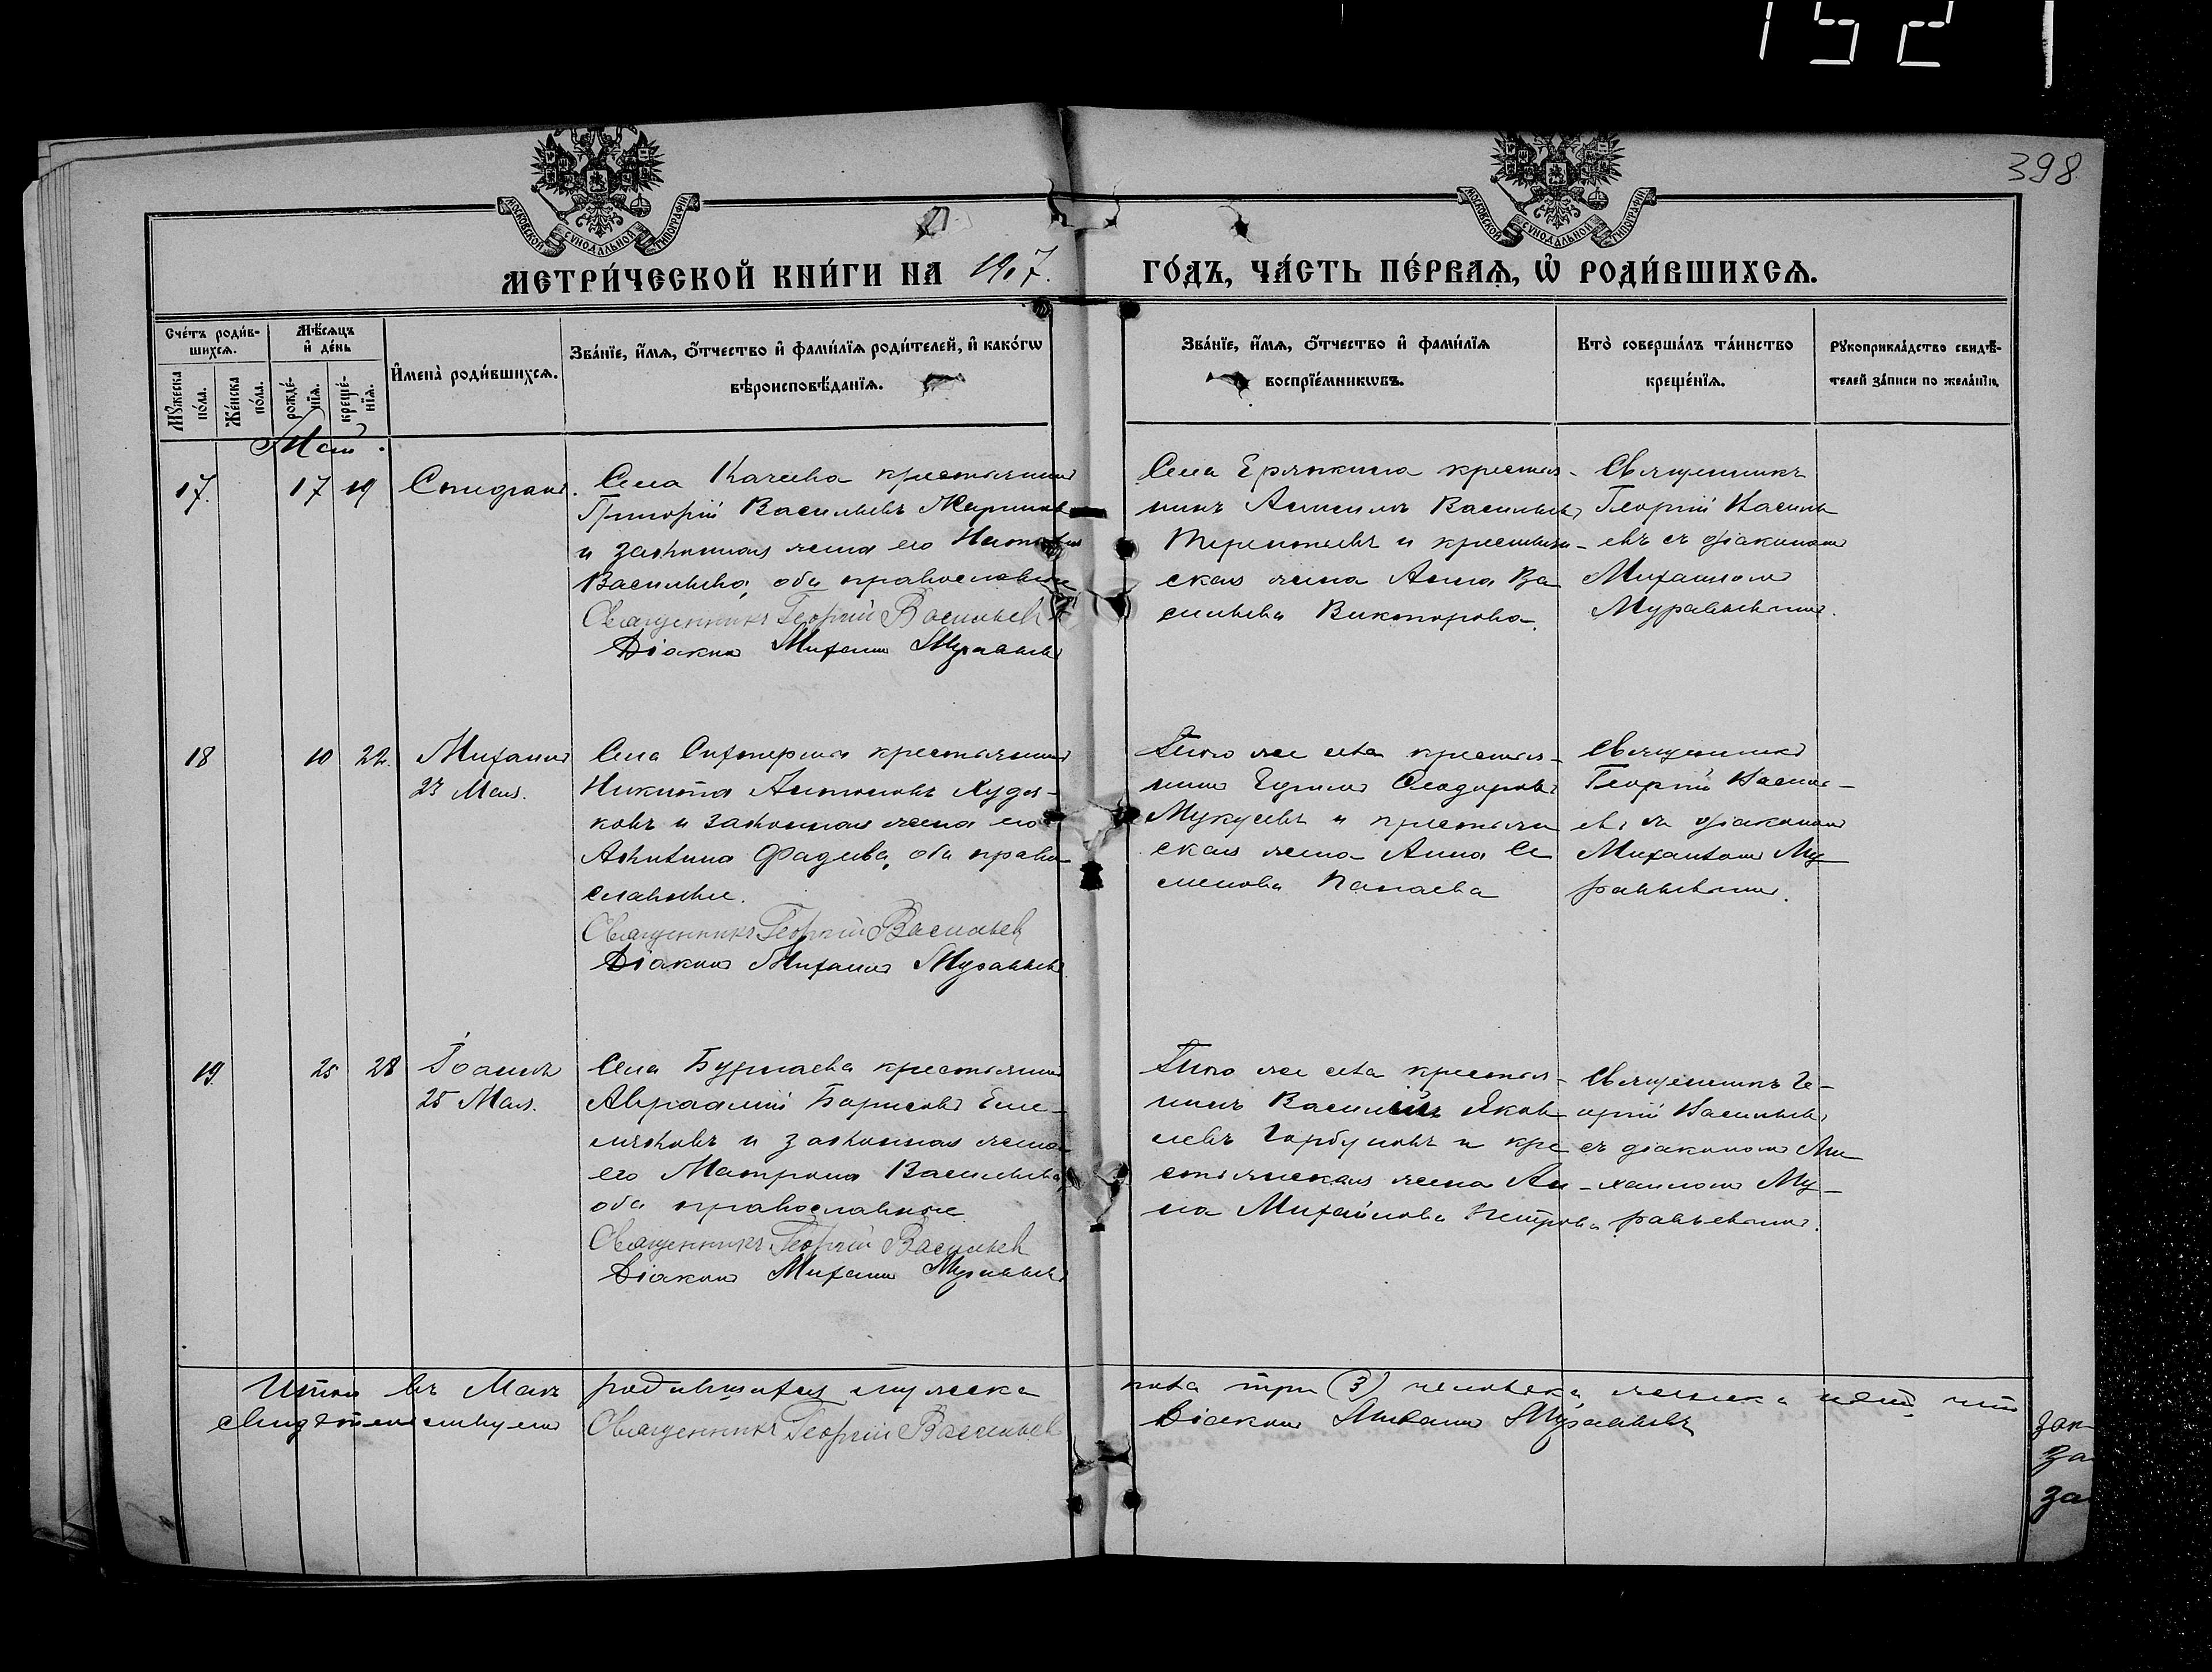 1521
398
МОСКОВСКОЙ СѴНОДАЛЬНОЙ ТИПОГРАФІИ
МОСКОВСКОЙ СѴНОДАЛЬНОЙ ТИПОГРАФІИ
МЕТРИ́ЧЕСКОЙ КНИ́ГИ НА 1907.
ГО́ДЪ, ЧА́СТЬ ПЕ́РВАѦ, Ѽ РОДИ́ВШИХСѦ.
Сче́тъ роди́в-
шихсѧ.
Мѣ́сѧцъ
и҆ де́нь
Мꙋ́жеска
по́ла.
Же́нска
по́ла.
рожде́-
нїѧ.
креще́-
нїѧ.
И҆мена̀ роди́вшихсѧ.
Зва́нїе, и҆́мѧ, ѻ҆́тчество и҆ фами́лїѧ роди́телей, и҆ како́гѡ
вѣроисповѣ́данїѧ.
Зва́нїе, и҆́мѧ, ѻ҆́тчество и҆ фами́лїѧ
воспрїе́мникѡвъ.
Кто̀ соверша́лъ та́инство
креще́нїѧ.
Рꙋкоприкла́дство свидѣ́-
телей за́писи по жела́нїю.
Май.
17. 17 19
Села Качеева крестьянинъ
Григорій Васильевъ
и законная жена его
Васильева, оба православные
Священникъ Георгій Васильев
Діаконъ Михаилъ Муравьевъ
Села крестья-
нинъ Васильевъ
Терентьевъ и крестьян-
ская жена Анна Ва
сильева Викторова.
Священникъ
Георгій Василь
евъ съ діакономъ
Михаиломъ
Муравьевымъ.
18 10 22.
Михаилъ
23 Мая.
Села крестьянинъ
Никита Антоновъ Худя-
ковъ и законная жена его
Акилина Фадѣева, оба право
славные.
Священникъ Георгій Васильев
Діаконъ Михаилъ Муравьевъ
Того же села крестья-
нинъ Ѳеодоровъ
и крестьян
ская жена Анна Се
менова
Священникъ
Георгій Василь-
евъ съ діакономъ
Михаиломъ Му
равьевымъ.
19. 25 28
Іоаннъ
25 Мая.
Села Буртаева крестьянинъ
Авраамій Борисовъ Еме-
ляновъ и законная жена
его Матрона Васильева,
оба православные
Священникъ Георгій Васильев
Діаконъ Михаилъ Муравьевъ
Того же села крестья-
нинъ Василій Яков
левъ Горбуновъ и кре
стьянская жена Ан-
на Михайлова Петрова
Священникъ Ге-
оргій Васильевъ
съ діакономъ Ми
хаиломъ Му-
равьевымъ.
Итого въ Маѣ родившихся мужска пола три (3) человѣка, женска нѣтъ, что
свидѣтельствуемъ Священникъ Георгій Васильев Діаконъ Михаилъ Муравьевъ
зак
за
за